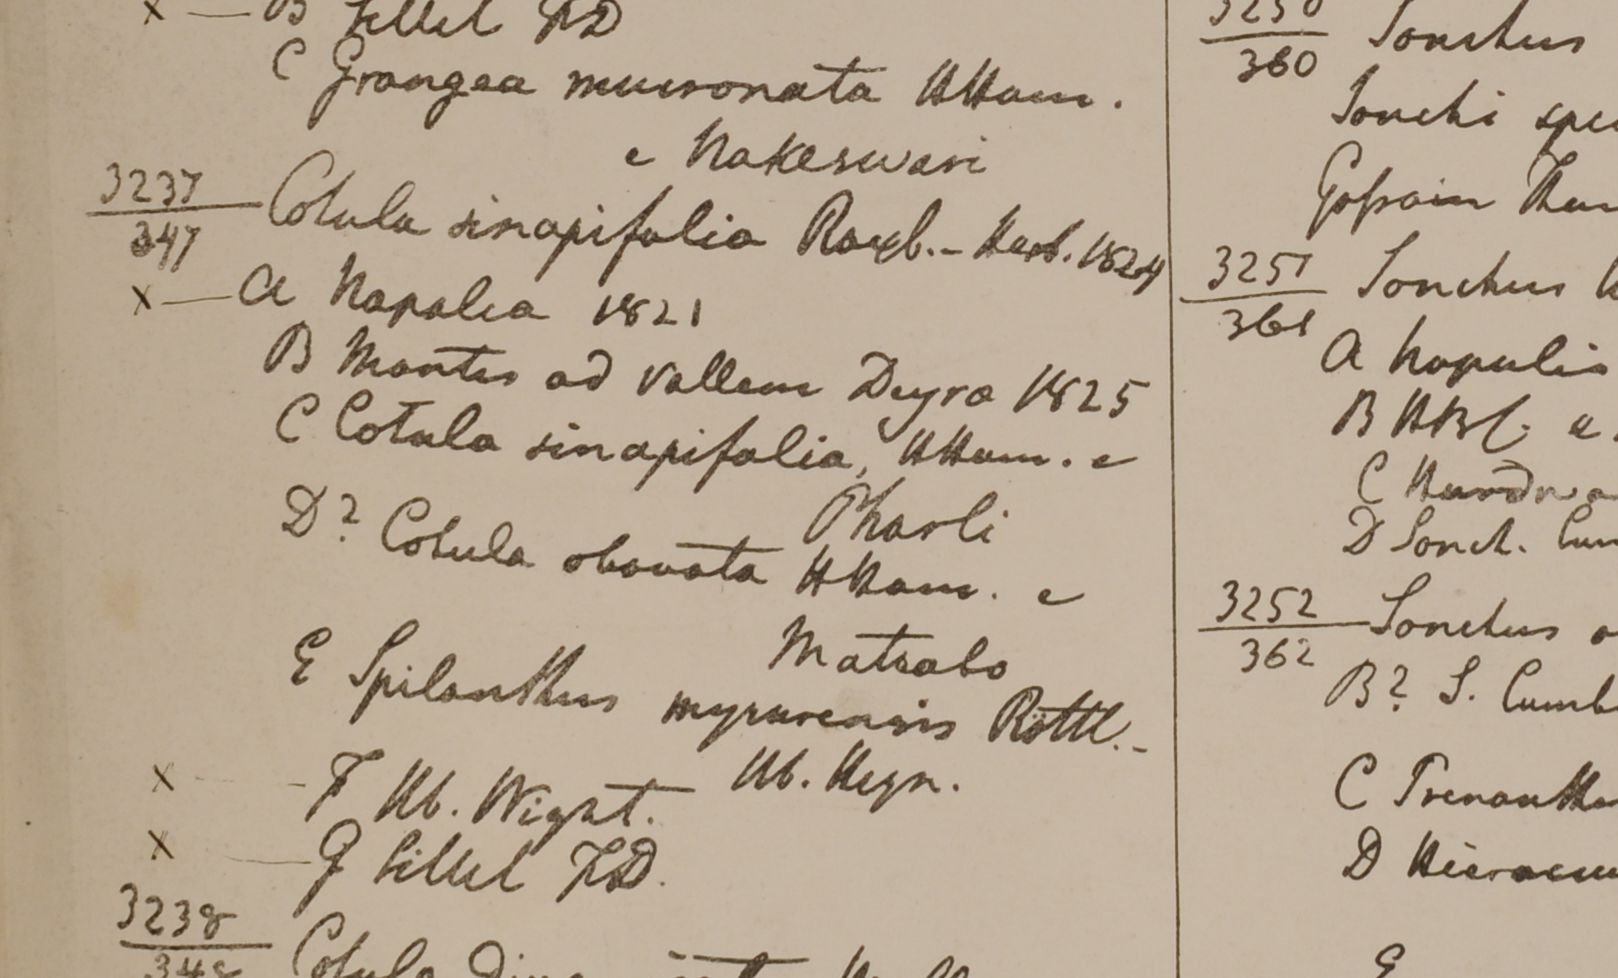 x — B Sillet FD
C Grangea mucronata HHam.
e Nakeswari
3237
347
Cotula sinapifolia Roxb. - Herb. 1824
x — a Napalia 1821
B Montes ad Vallem Deyra 1825
C Cotula sinapifolia, HHam. e
Pharli
D? Cotula obovata HHam. e
Matrabo
E Spilanthus mysurensis Rottl. -
Hb. Heyn.
x — F Hb. Wight.
x — G Sillet FD.
3238
348
Cotula
3250
360
Sonchus
Sonchi
Gossain Than
3251
361
Sonchus
a Napulis
B HBC. e
C
D Sonch.
3252
362
Sonchus
B? S.
C
D
E